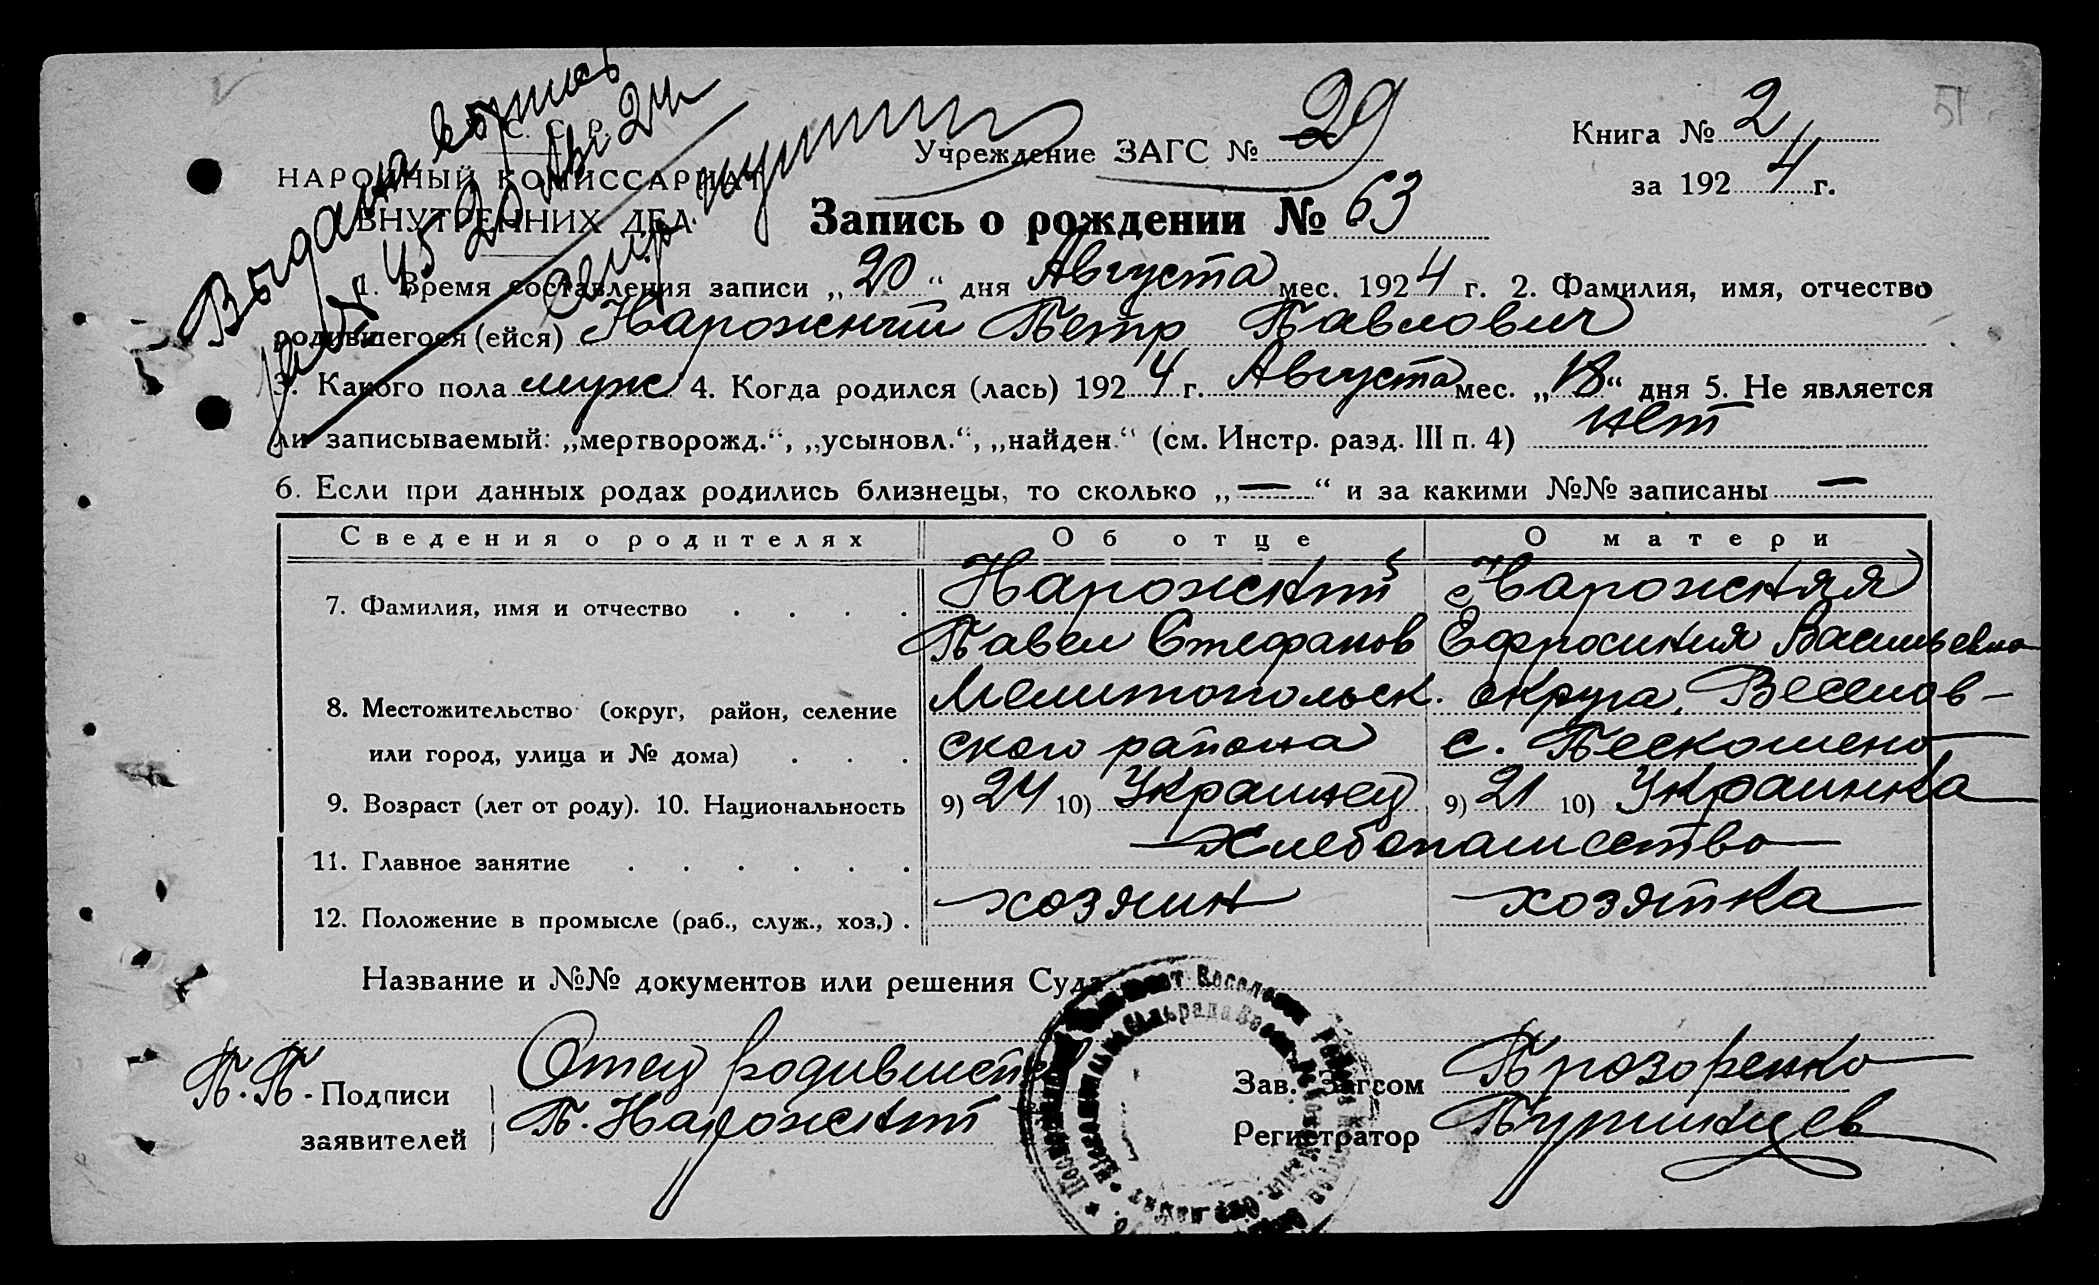 51
Выдана копия
20 Авг 24
У. С. С. Р.
НАРОДНЫЙ КОМИССАРИАТ
ВНУТРЕННИХ ДЕЛ
Учреждение ЗАГС № 29
Книга № 2
за 1924 г.
Запись о рождении № 63
1. Время составления записи „20“ дня Августа мес. 1924 г. 2. Фамилия, имя, отчество
родившегося (ейся) Нарожний Петр Павлович
3. Какого пола муж 4. Когда родился (лась) 1924 г. Августа мес. „18“ дня 5. Не является
ли записываемый: „мертворожд.“, „усыновл.“, „найден.“ (см. Инстр. разд. III п. 4) нет
6. Если при данных родах родились близнецы, то сколько „—“ и за какими №№ записаны —
Сведения о родителях Об отце О матери
7. Фамилия, имя и отчество . . . . Нарожний Нарожняя
Павел Стефанов Ефросиния Васильевна
8. Местожительство (округ, район, селение Мелитопольск. округа, Веселов-
или город, улица и № дома) . . . ского района с. Пескошено
9. Возраст (лет от роду). 10. Национальность 9) 24 10) Украинец 9) 21 10) Украинка
11. Главное занятие . . . . . . Хлебопашество
12. Положение в промысле (раб., служ., хоз.) . хозяин хозяйка
Название и №№ документов или решения Суда
П.П. Подписи заявителей
Отец родившегося
П. Нарожний
Зав. Загсом Прозоренко
Регистратор